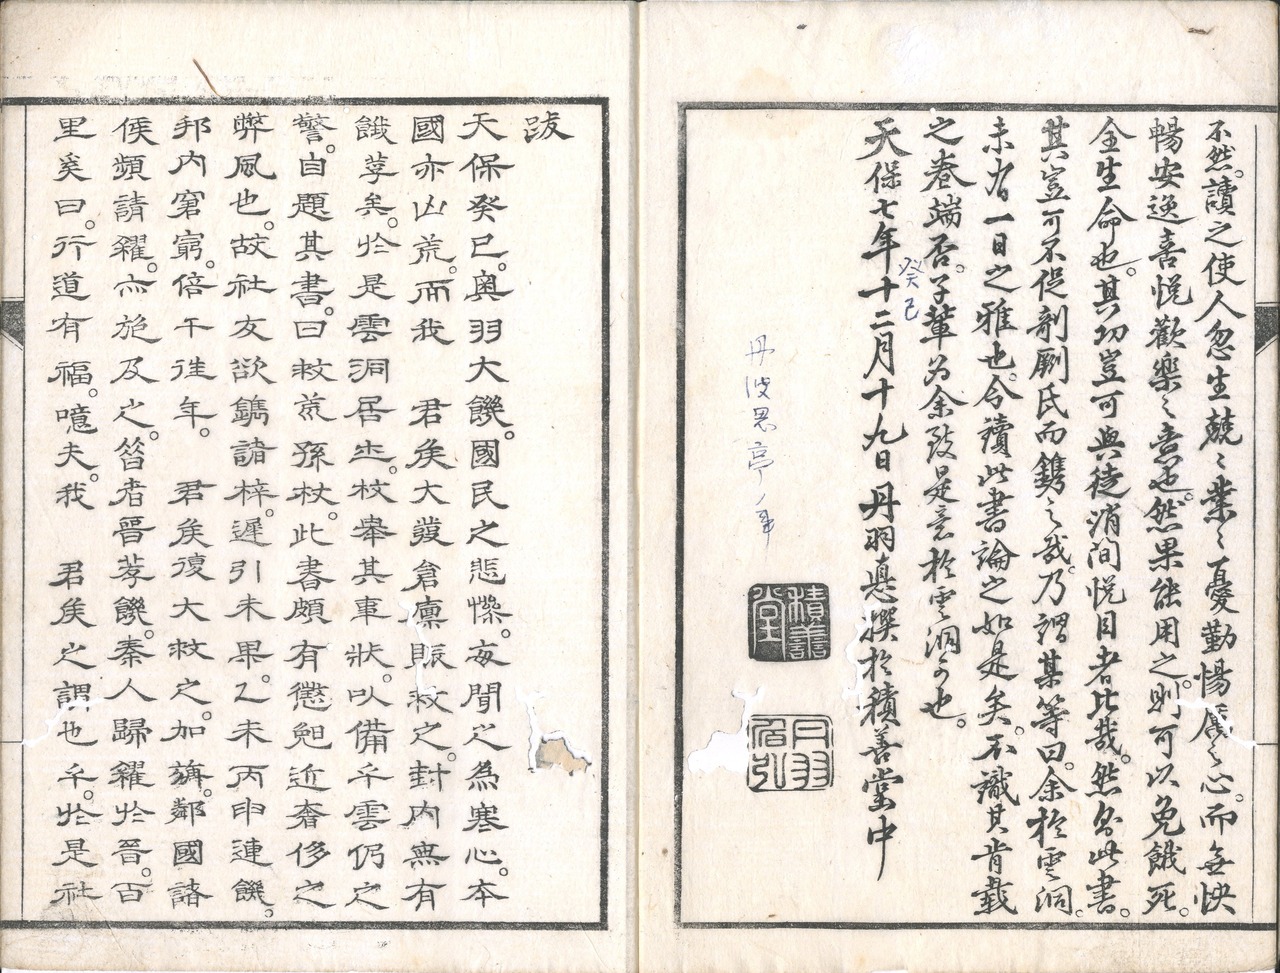 不然。讀之使人忽生兢〻業〻憂勤惕厲之心。而無怏
暢安逸喜悅歡樂之意也。然果能用之。則可以免餓死。
全生命也。其功豈可與徒消閒悅目者比哉。然則此書。
其豈可不促剞劂氏而鐫之哉。乃謂某等曰。余於雲洞。
未有一日之雅也。今讀此書論之如是矣。不識其肯載
之卷端否。子輩為余致是意於雲洞可也。
天保七年十二月十九日丹羽 撰於積善堂中
癸巳
丹波 亭
積善堂
丹羽
跋
天保癸巳。奧羽大饑。國民之悲慘。每聞之為寒心。本
國亦凶荒。而我　君侯大發倉廩賑救之。封內無有
餓莩矣。於是雲洞居士。杖舉其車狀。以備千雲仍之
警。自題其書。曰救荒孫杖。此書頗有懲創近奢侈之
弊風也。故社友欲鐫諸梓。遲引未果。乙未丙申連饑。
邦內窘窮。倍于往年。　君侯復大救之。加旃鄰國諸
侯頻請糴。亦施及之。昔者晉荐饑。秦人歸糴於晉。百
里奚曰。行道有福。噫夫。我　君侯之謂也乎。於是社